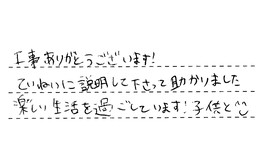 工事ありがとうございます!
ていねいに説明して下さって助かりました
楽しい生活を過ごしています!子供と^^